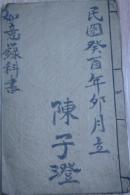 民國癸酉年卯月立
陳子澄
如意蘇科書